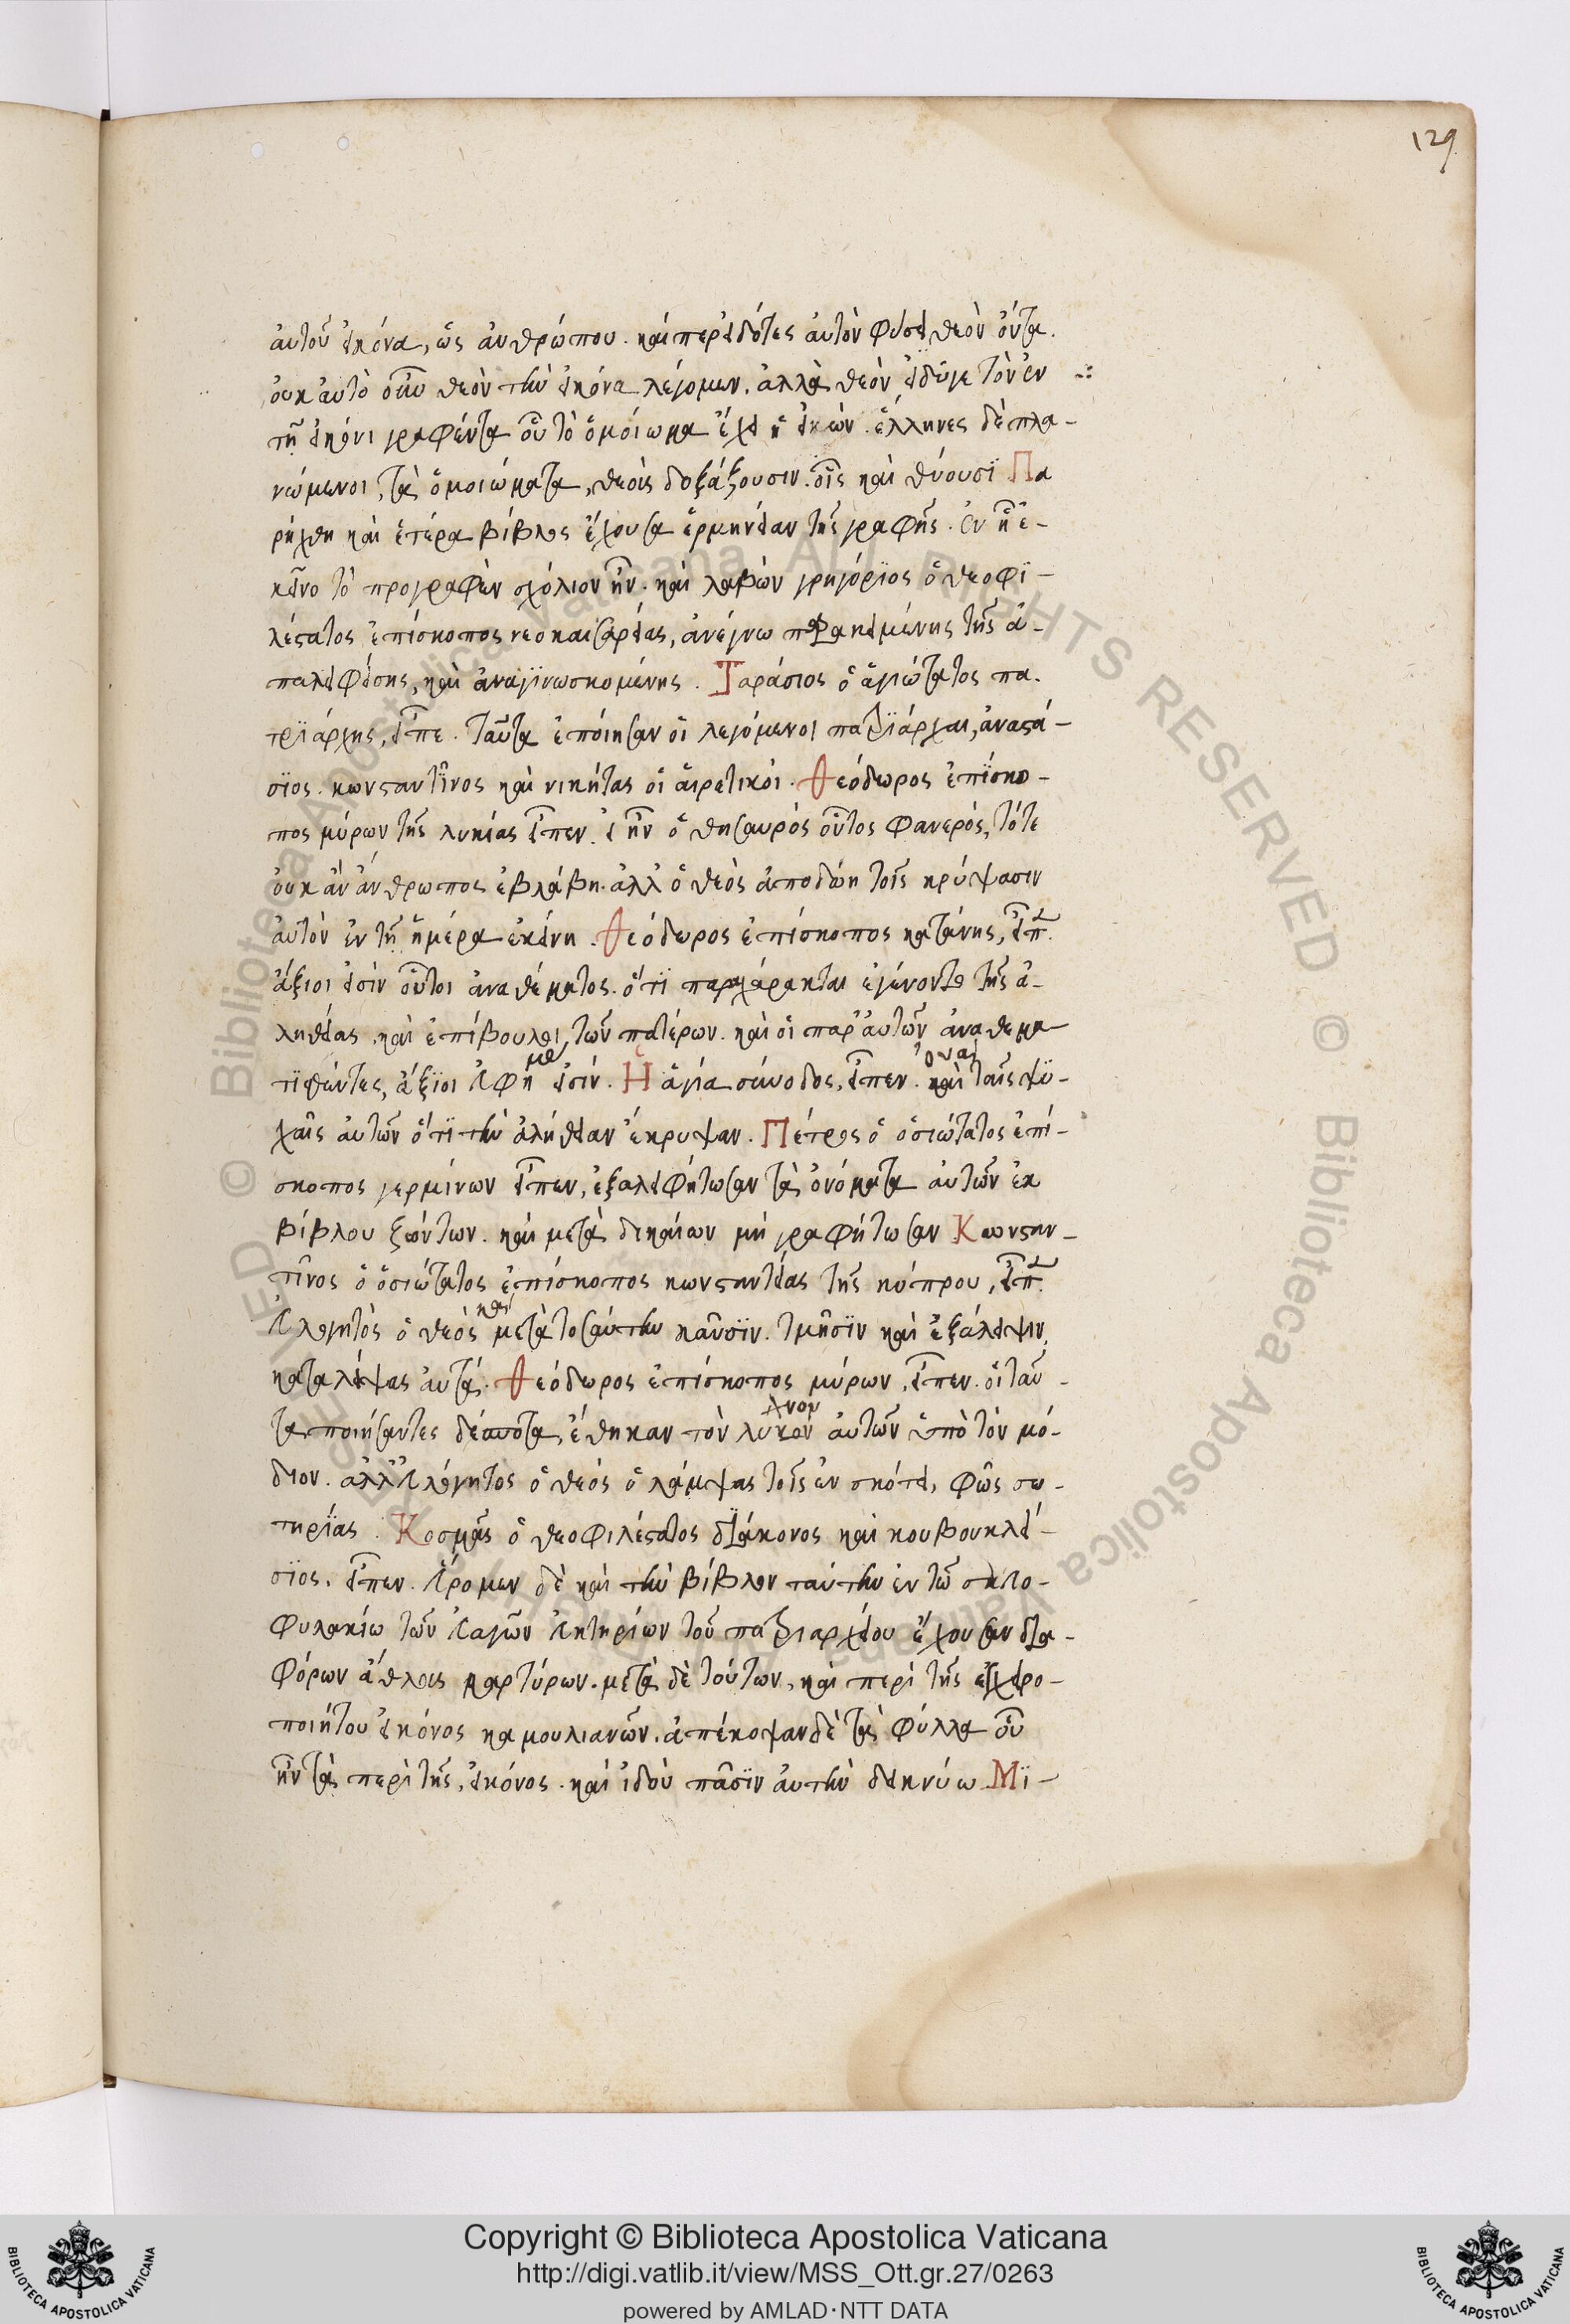 129
αὐτοῦ εἰκόνα, ὡς ἀνθρώπου. καίπερ εἰδότες αὐτὸν φύσει θεὸν ὄντα.
οὐκ αὐτὸ οὖν θεὸν τὴν εἰκόνα λέγομεν. ἀλλὰ θεὸν εἰδῶμε τὸν ἐν
τῆ εἰκόνι γραφέντα οὗ τὸ ὁμοίωμα ἔχει ἡ εἰκών. ἕλληνες δὲ πλα-
νώμενοι, τὰ ὁμοιώματα, θεοὺς δοξάζουσιν. οἷς καὶ θύουσϊ Πα
ρήχθη καὶ ἑτέρα βίβλος ἔχουσα ἑρμηνείαν τῆς γραφῆς. ἐν ἧ ἐ-
κεῖνο τὸ προγραφὲν σχόλιον ἦν. καὶ λαβὼν γρηγόρϊος ὁ θεοφϊ-
λέστατος ἐπίσκοπος νεοκαισαρείας, ἀνέγνω παρακειμένης τῆς ἀ-
παλειφείσης, καὶ ἀναγϊνωσκομένης. Ταράσιος ὁ ἁγιώτατος πα.
τρϊάρχης, εἶπε. ταῦτα ἐποίησαν οἱ λεγόμενοι πατρϊάρχαι, ἀναστά-
σϊος. κωνσταντῖνος καὶ νικήτας οἱ αἱρετικοὶ. Θεόδωρος ἐπϊσκο-
πος μύρων τῆς λυκίας εἶπεν. εἰ ἦν ὁ θησαυρὸς οὗτος φανερὸς, τότε
οὐκ ἂν ἄνθρωπος ἐβλάβη. ἀλλ ὁ θεὸς ἀποδώη τοῖς κρύψασιν
αὐτὸν ἐν τῆ ἡμέρα ἐκείνη. Θεόδωρος ἐπίσκοπος κατάνης, εἶπ.
ἄξιοι εἰσὶν οὗτοι ἀναθέματος. ὅτϊ παραχάρακται ἐγένοντο τῆς ἀ-
ληθείας. καὶ ἐπίβουλοι, τῶν πατέρων. καὶ οἱ παρ' αὐτῶν ἀναθεμα-
τϊσθέντες, ἄξϊοι εὐφημε εἰσίν. Ἡ ἁγία σύνοδος, εἶπεν. οὐαὶ ταῖς ψϋ-
χαῖς αὐτῶν ὅτϊ τὴν ἀλήθειαν ἔκρυψαν. Πέτρος ὁ ὁσιώτατος ἐπί-
σκοπος γερμίνων εἶπεν, ἐξαλειφήτωσαν τὰ ὀνόματα αὐτῶν ἐκ
βίβλου ζώντων. καὶ μετὰ δικαίων μὴ γραφήτωσαν Κωνσταν-
τῖνος ὁ ὁσιώτατος ἐπίσκοπος κωνσταντείας τῆς κύπρου, εἶπ.
εὐλογητὸς ὁ θεὸς καὶ μετὰ τοσαύτην καῦσϊν. τμῆσϊν καὶ ἐξάλειψιν,
καταλείψας αὐτά. Θεόδωρος ἐπίσκοπος μύρων, εἶπεν. οἱ ταῦ-
τα ποιήσαντες δέαυστα, ἔθηκαν τὸν λύχνον αὐτῶν ὑπὸ τὸν μό-
διον. ἀλλ' εὐλόγητος ὁ θεὸς ὁ λάμψας τοῖς ἐν σκότει, φῶς σω-
τηρϊας. Κοσμᾶς ὁ θεοφιλέστατος δϊάκονος καὶ κουβουκλεί-
σϊος. εἶπεν. εὕρομεν δὲ καὶ τὴν βίβλον ταύτην ἐν τῶ σκευο-
φυλακίω τῶν εὐαγῶν εὐκτηρίων τοῦ πατριαρχείου ἔχουσαν δϊα-
φόρων ἄθλους μαρτύρων. μετὰ δὲ τούτων, καὶ περὶ τῆς ἀχειρο-
ποιήτου εἰκόνος καμουλιανῶν. ἀπέκοψαν δὲ τὰ φύλλα οὗ
ἦν τὰ περὶ τῆς, εἰκόνος. καὶ ἰδοὺ πᾶσϊν αὐτὴν δεικνύω Μϊ-
Copyright © Biblioteca Apostolica Vaticana
http://digi.vatlib.it/view/MSS_Ott.gr.27/0263
powered by AMLAD·NTT DATA